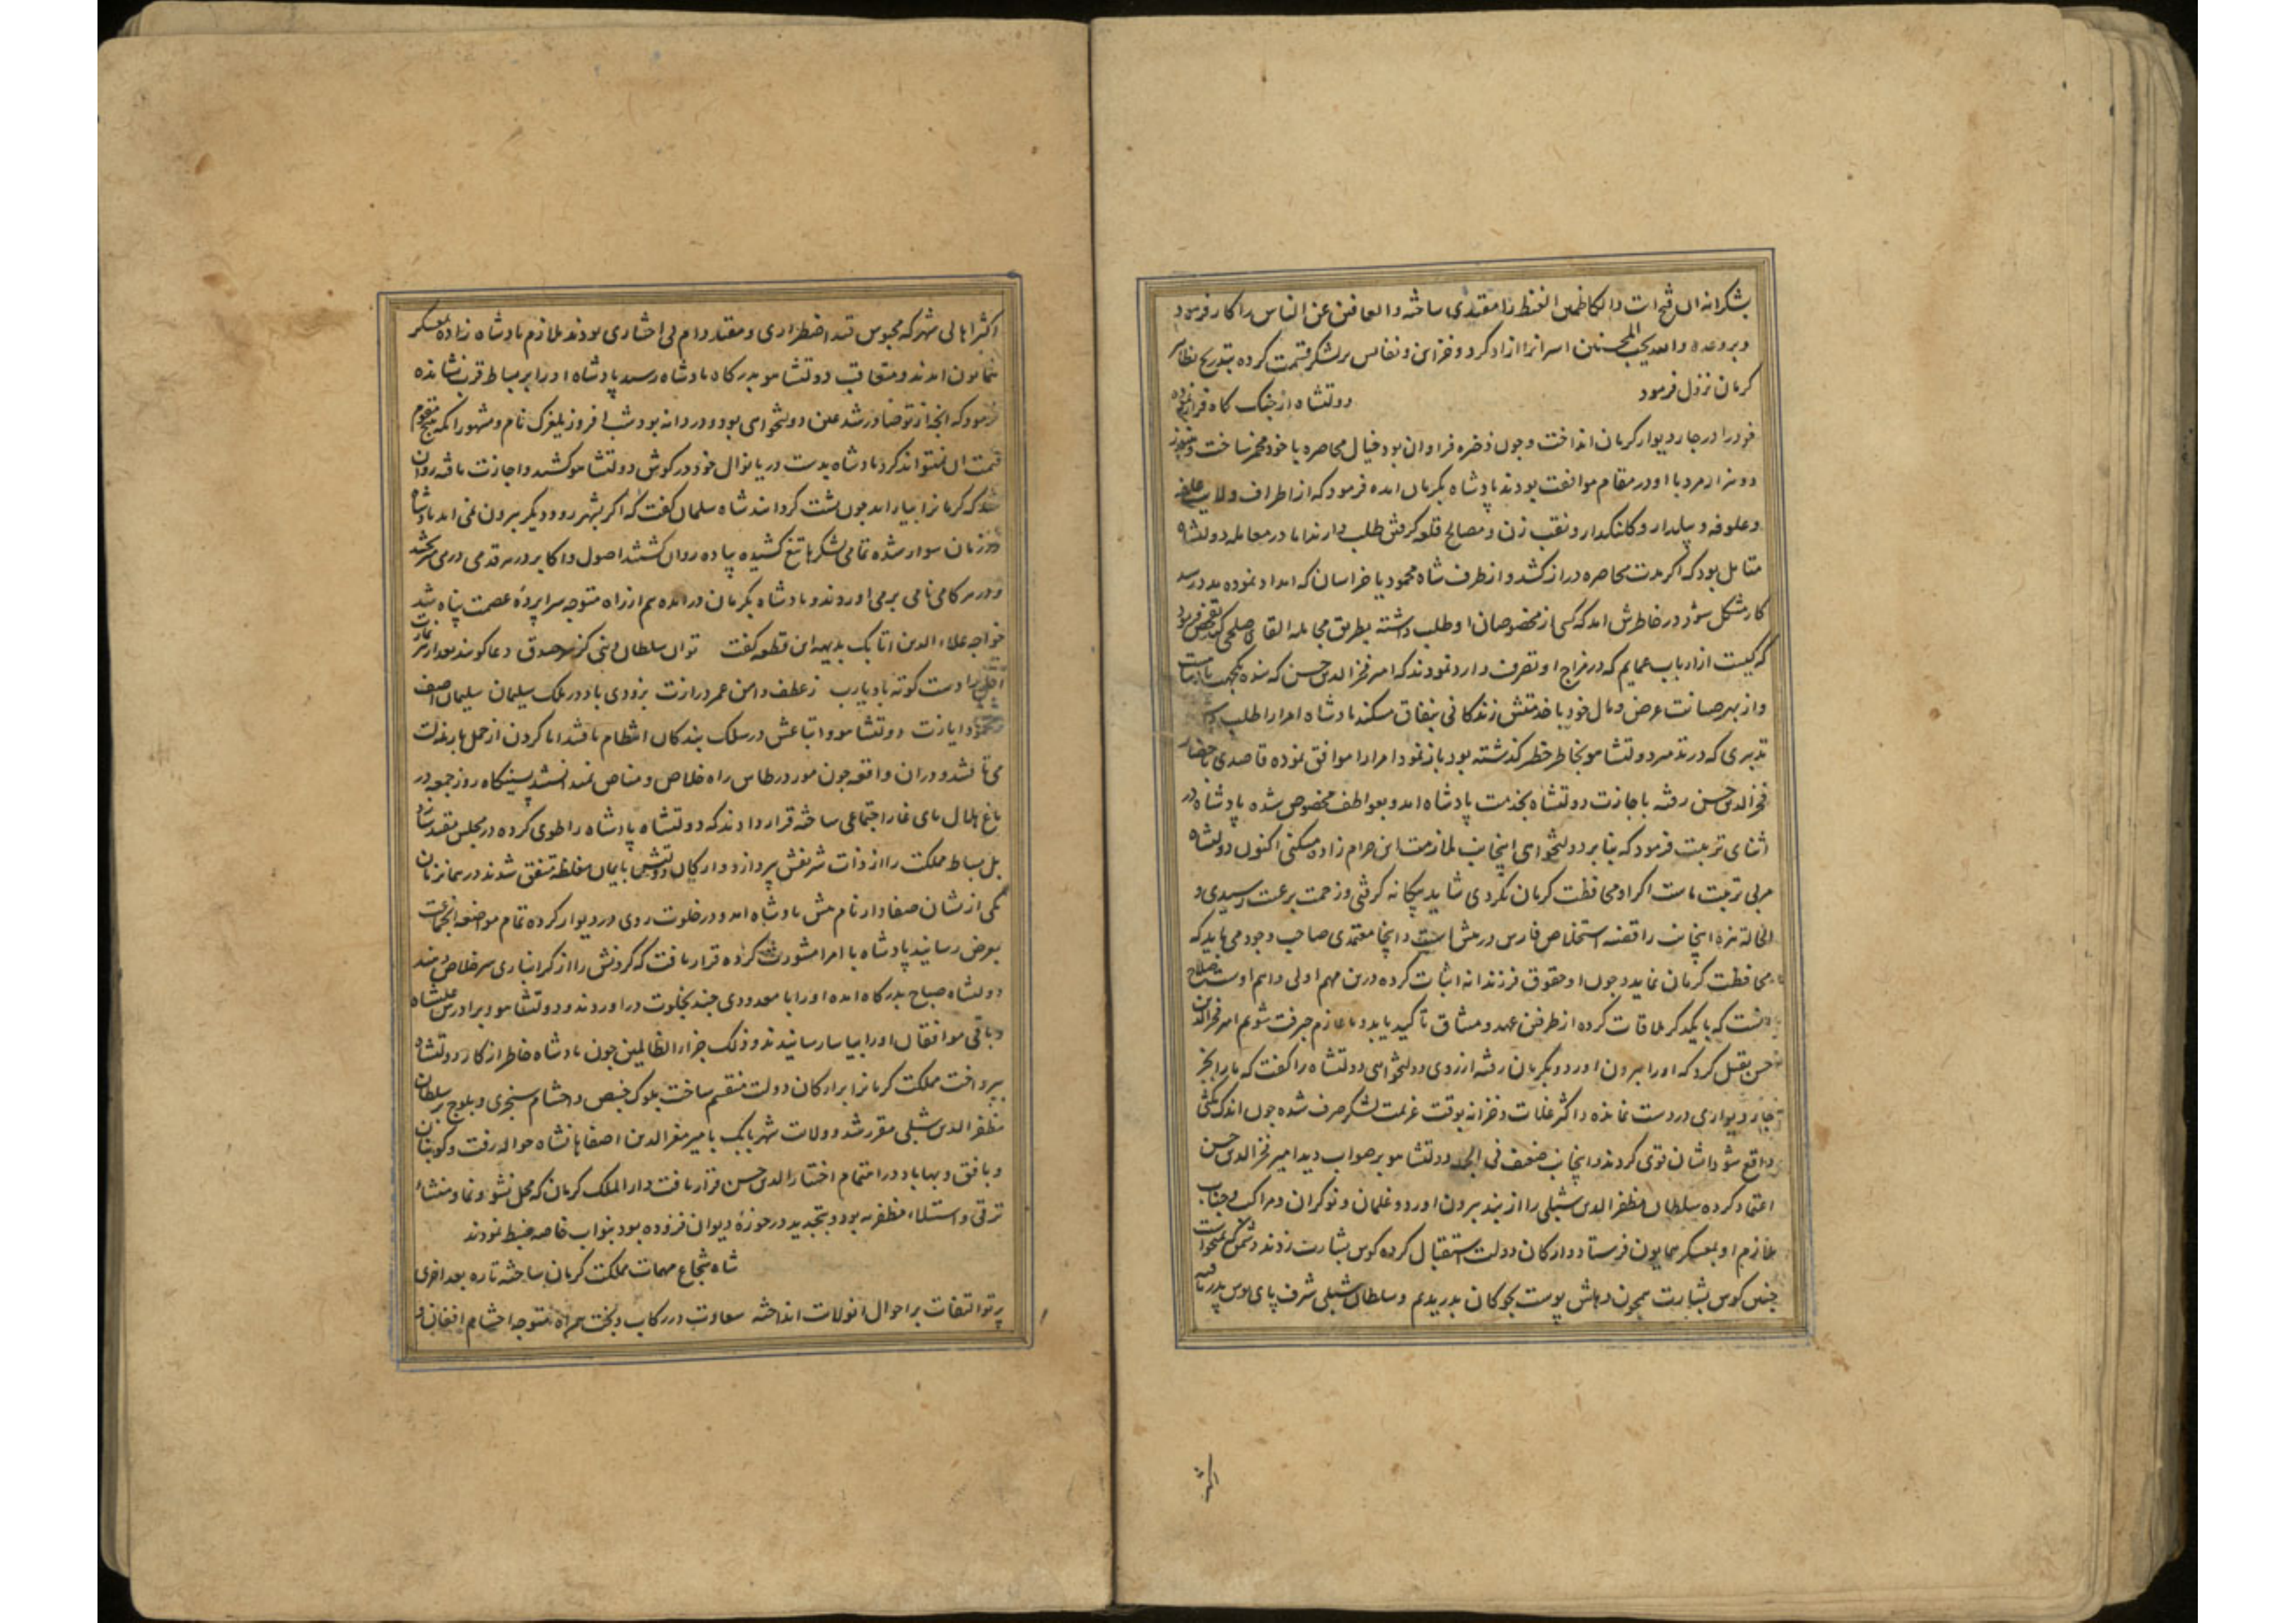 بشکرانه ان فتح ات والکاظمین الغیظ را مقتدی ساخته والعافین عن الناس را کار فرمود
وبروعده والله یحب المحسنین اسرانرا ازاد کرد و خزاین و نفایس بر لشکر قسمت کرده بتدریج بظاهر
کرمان نزول فرمود دولتشاه از جنک کاه فرار نموده
خود را در چار دیوار کرمان انداخت و چون ذخیره فراوان بود خیال محاصره با خود مخمر ساخت و
دو هزار مرد با او در مقام موافقت بودند پادشاه بکرمان امده فرمود که از اطراف ولایت
وعلوفه و بیلدار و کلنکدار و نقب زن و مصالح قلعه کرفتن طلب دارند اما در معامله دولتشاه
متامل بود که اکر مدت محاصره دراز کشد و از طرف شاه محمود یا خراسان که امداد نموده مدد رسد
کار مشکل شود در خاطرش امد که کسی از مخصوصان او طلب داشته بطریق مجامله القاء صلحی کند تفحص فرمود
که کیست از ارباب عمایم که در مزاج او تصرف دارد نمودند که امیر فخر الدین حسن که بنده یکجهت
واز بهر صیانت عرض و مال خود با خدمتش زندکانی بنفاق میکند پادشاه امرا را طلب
تدبیری که در تدمیر دولتشاه بخاطر خطر کذشته بود باز نمود امرا را موافق نموده قاصدی باحضار
فخر الدین حسن رفته باجازت دولتشاه بخدمت پادشاه امد و بعواطف مخصوص شده پادشاه در
اثنای تربیت فرمود که بنابر دولتخواهی اینجانب ملازمت این حرام زاده میکنی اکنون دولتشاه
مربی تربیت ماست اکر او محافظت کرمان نکردی شاید بیکانه کرفتی و زحمت برعیت رسیدی و
الحالة هذه اینجانب را قضیه استخلاص فارس در پیش است و اینجا معتمدی صاحب وجود می باید که
محافظت کرمان نماید و چون او حقوق فرزندانه اثبات کرده درین مهم اولی و اهم اوست صلاح
انست که با یکدیکر ملاقات کرده از طرفین عهد و میثاق تاکید یابد و ما عازم جیرفت شویم امیر فخر الدین
حسن تقبل کرد که او را بیرون اورد و بکرمان رفته از روی دولتخواهی دولتشاه را کفت که ما را بجز
چار دیواری در دست نمانده و اکثر غلات و خزانه بوقت عزیمت لشکر صرف شده چون اندک
واقع شود ایشان قوی کردند و اینجانب ضعیف فی الجمله دولتشاه برصواب دید امیر فخر الدین حسن
اعتماد کرده سلطان مظفر الدین شبلی را از بند بیرون اورد و غلمان و نوکران و مراکب و جنایب
ملازم او بمعسکر همایون فرستاد و ارکان دولت استقبال کرده کوس بشارت زدند
چنین کوس بشارت همچون دهلش پوست بچوکان بدریدیم و سلطان شبلی شرف پای بوس پدر یافته
اکثر
اکثر اهالی شهر که محبوس قید اضطراری و مقید دام بی اختیاری بودند ملازم پادشاه زاده بمعسکر
همایون امدند و متعاقب دولتشاه بدرکاه پادشاه رسید پادشاه او را بر بساط قرب نشانده
فرمود که انچه از تو صادر شد عین دولتخواهی بود و دردانه بود شب افروز بلغرک نام و مشهور انکه هیچ مقوم
قیمت ان نتواند کرد پادشاه بدست دریا نوال خود در کوش دولتشاه کشید و اجازت یافته روان
شد که کرمانرا بیاراید چون پشت کردانید شاه سلمان کفت که اکر بشهر رود دیکر بیرون نمی اید پادشاه
در زمان سوار شده تمامی لشکرها تیغ کشیده پیاده روان کشتند اصول و اکابر در هر قدمی درمی
و در هر کامی نامی بر می اوردند و پادشاه بکرمان درامده هم از راه متوجه سراپرده عصمت پناه شد
خواجه علاء الدین اتابک بدیهه این قطعه کفت توان سلطان کز صدق دعا کویند بعد از هر نمازت
اجل را دست کوته باد یارب ز عطف دامن عمر درازت بزودی باد در ملک سلیمان سلیمان اصف
محمود ایازت دولتشاه و اتباعش در سلک بندکان انتظام یافتند اما کردن از حمل بار مذلت
می تافتند و دران واقعه چون مور در طاس راه خلاص و مناص نمیدانستند پسینکاه روز جمعه در
باغ اجتماعی ساخته قرار دادند که دولتشاه پادشاه را طوی کرده در مجلس مقید
بل بساط مملکت را از ذات شریفش بپردازد و ارکان دولتش بایمان مغلظه متفق شدند در همان زمان
یکی از ایشان صفادار نام پیش پادشاه امد و در خلوت روی در دیوار کرده تمام مواضعه انجماعت
بعرض رسانید پادشاه با امرا مشورت کرده قرار یافت که کردنش را از کرانباری سر خلاص دهند
دولتشاه صباح بدرکاه امده او را با معدودی چند بخلوت دراوردند و دولتشاه و برادرش علیشاه
و باقی موافقان او را بیاسا رسانیدند و ذلک جزاء الظالمین چون پادشاه خاطر از کار دولتشاه
بپرداخت مملکت کرمانرا بر ارکان دولت منقسم ساخت بلوک خبیص و احشام سنجری و بلوچ بر سلطان
مظفر الدین شبلی مقرر شد و ولایت شهر بابک با میر معز الدین اصفهانشاه حواله رفت و کوبنان
و بافق و بهاباد در اهتمام اختیار الدین حسن قرار یافت دار الملک کرمان که محل نشو و نما و منشاء
ترقی و استیلاء مظفریه بود و بتجدید در حوزه دیوان فزوده بود بنواب خاصه ضبط نمودند
شاه شجاع مهمات مملکت کرمان ساخته تاره بعد اخری
پرتو التفات بر احوال انولایت انداخته سعادت در رکاب و بخت همراه متوجه احشام افغان و